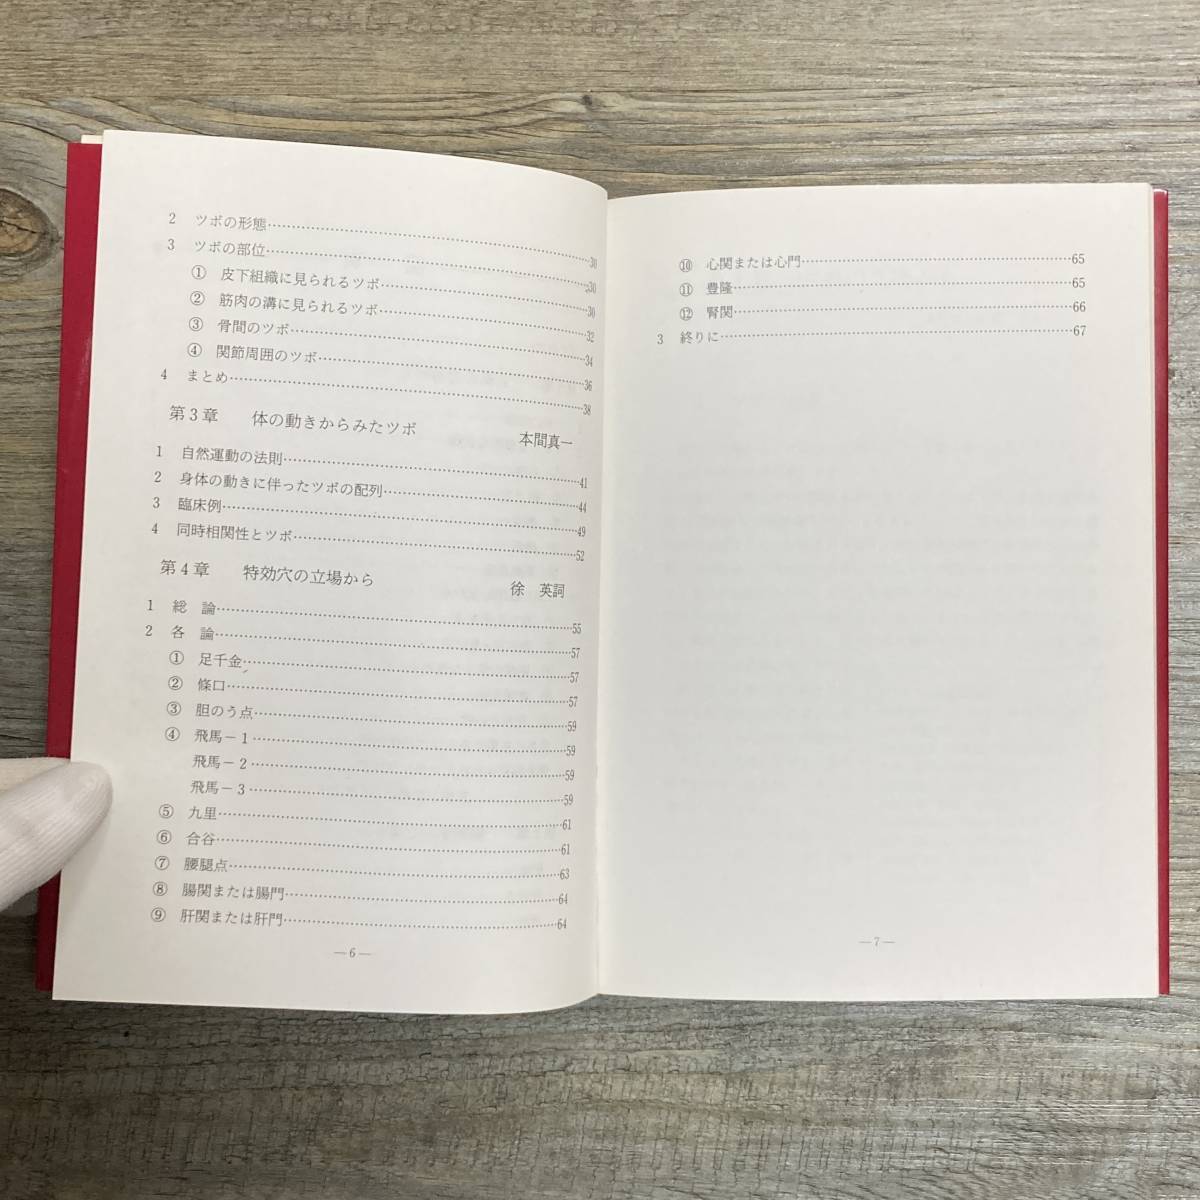 2　ツボの形態……………………30
3　ツボの部位……………………30
①　皮下組織に見られるツボ……………………30
②　筋肉の溝に見られるツボ……………………32
③　骨間のツボ……………………34
④　関節周囲のツボ……………………36
4　まとめ……………………38
第3章　体の動きからみたツボ　本間真一
1　自然運動の法則……………………41
2　身体の動きに伴ったツボの配列……………………44
3　臨床例……………………49
4　同時相関性とツボ……………………52
第4章　特効穴の立場から　徐　英詞
1　総　論……………………55
2　各　論……………………57
①　足千金……………………57
②　條口……………………57
③　胆のう点……………………59
④　飛馬－1……………………59
飛馬－2……………………59
飛馬－3……………………59
⑤　九里……………………61
⑥　合谷……………………61
⑦　腰腿点……………………63
⑧　腸関または腸門……………………64
⑨　肝関または肝門……………………64
—6—
⑩　心関または心門……………………65
⑪　豊隆……………………65
⑫　腎関……………………66
3　終りに……………………67
—7—